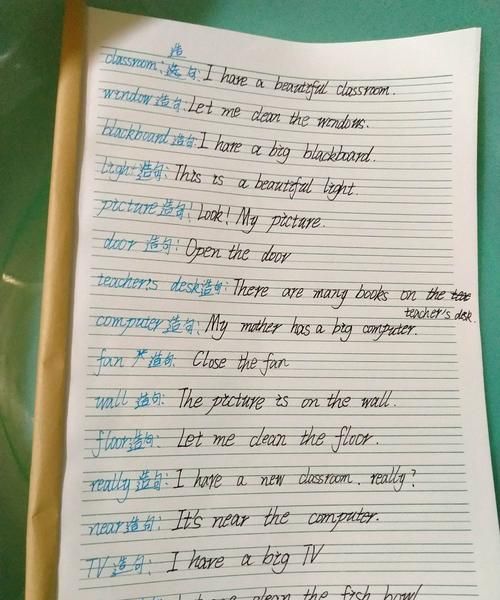 造
classroom: 造句: I have a beautiful classroom.
window 造句: Let me clean the windows.
blackboard 造句: I have a big blackboard.
light 造句: This is a beautiful light.
picture 造句: Look! My picture.
door 造句: Open the door
teacher's desk 造句: There are many books on the
teacher's desk.
computer 造句: My mother has a big computer.
fan 造句: Close the fan
wall 造句: The picture is on the wall.
floor 造句: Let me clean the floor.
really 造句: I have a new classroom. really?
near 造句: It's near the computer.
TV 造句: I have a big TV
clean the fish bowl